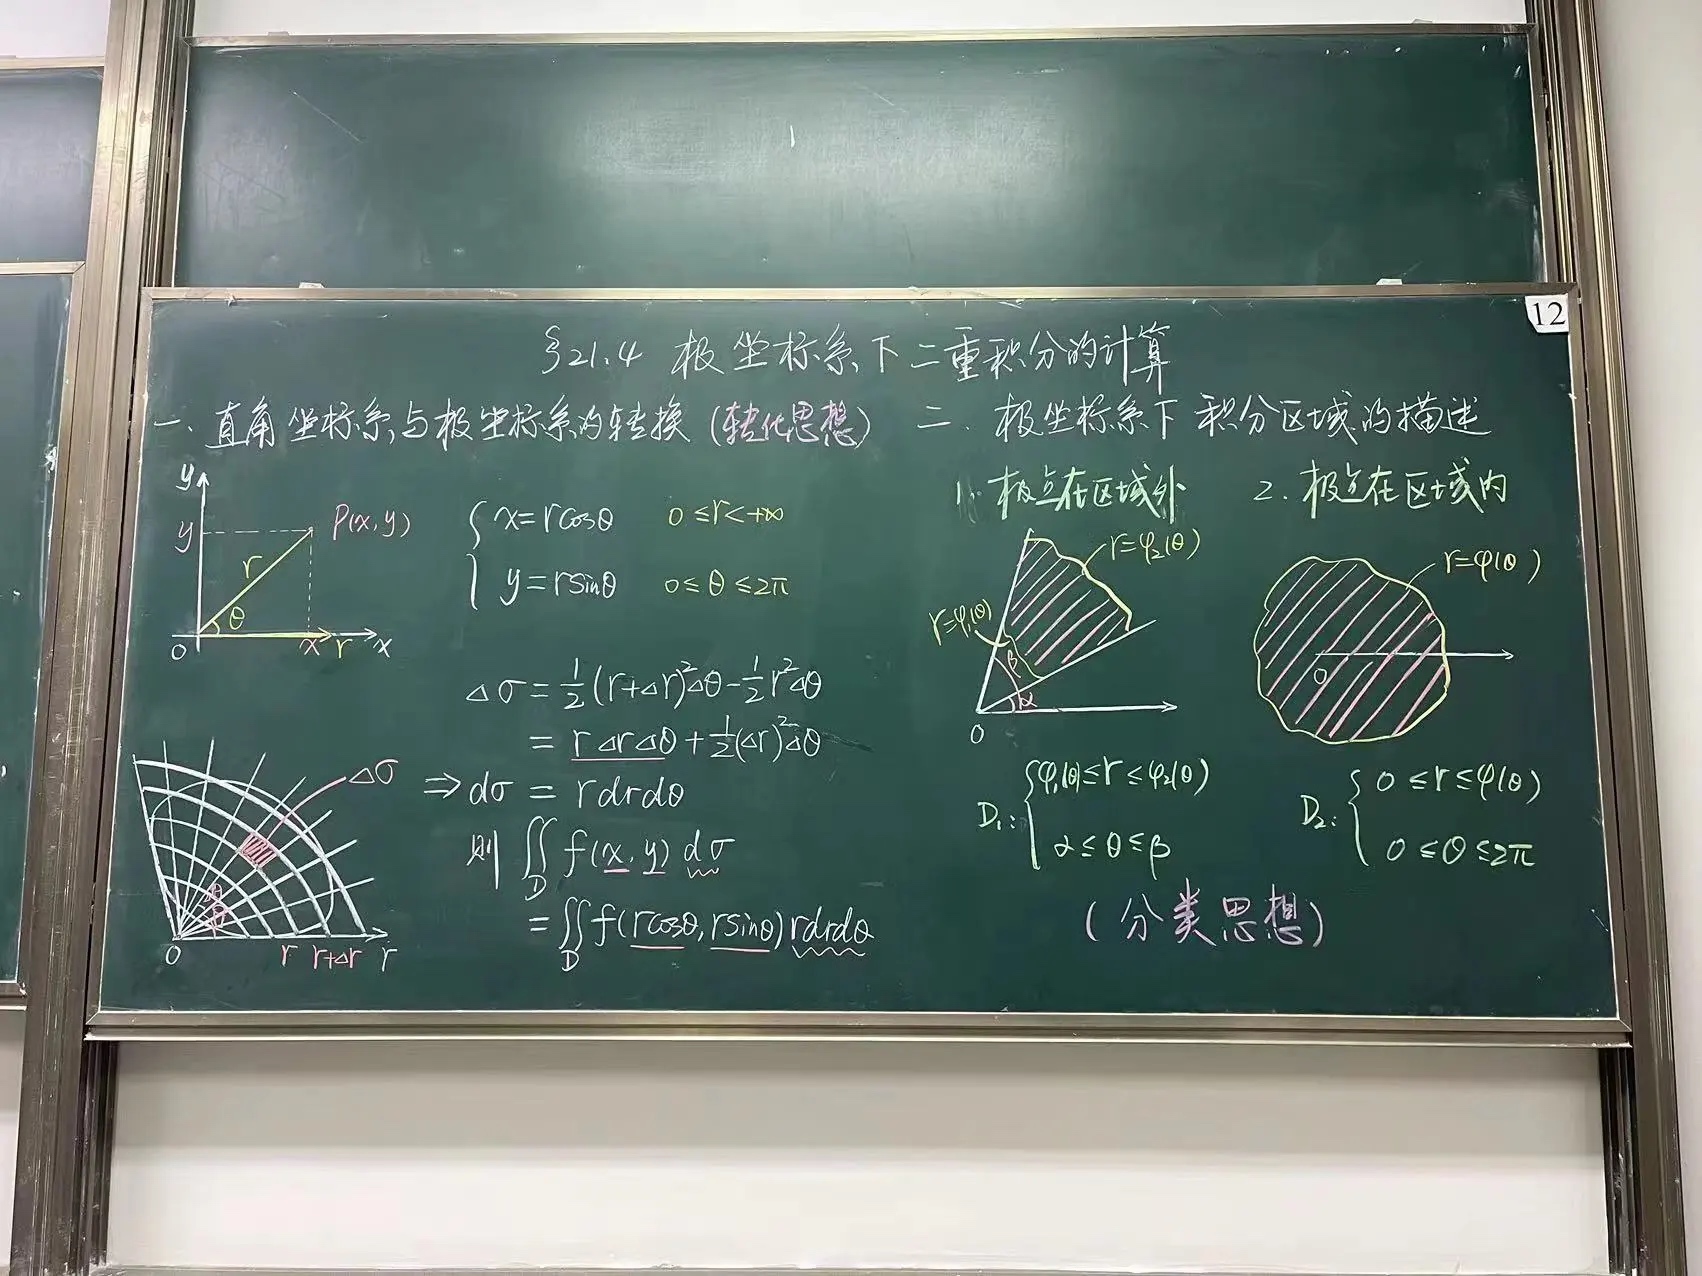 12
§21.4 极坐标系下二重积分的计算
一. 直角坐标系与极坐标系的转换 (转化思想)
y
y
P(x,y)
r
θ
O
x
r
x
{ x=rcosθ 0≤r<+∞
y=rsinθ 0≤θ≤2π
Δσ=1/2(r+Δr)²Δθ-1/2r²Δθ
=rΔrΔθ+1/2(Δr)²Δθ
⇒dσ=rdrdθ
则∬_D f(x,y)dσ
=∬_D f(rcosθ,rsinθ)rdrdθ
Δσ
O
r r+Δr r
二. 极坐标系下积分区域的描述
1. 极点在区域外
r=φ₂(θ)
r=φ₁(θ)
β
α
O
D₁: { φ₁(θ)≤r≤φ₂(θ)
α≤θ≤β
2. 极点在区域内
r=φ(θ)
O
D₂: { 0≤r≤φ(θ)
0≤θ≤2π
(分类思想)